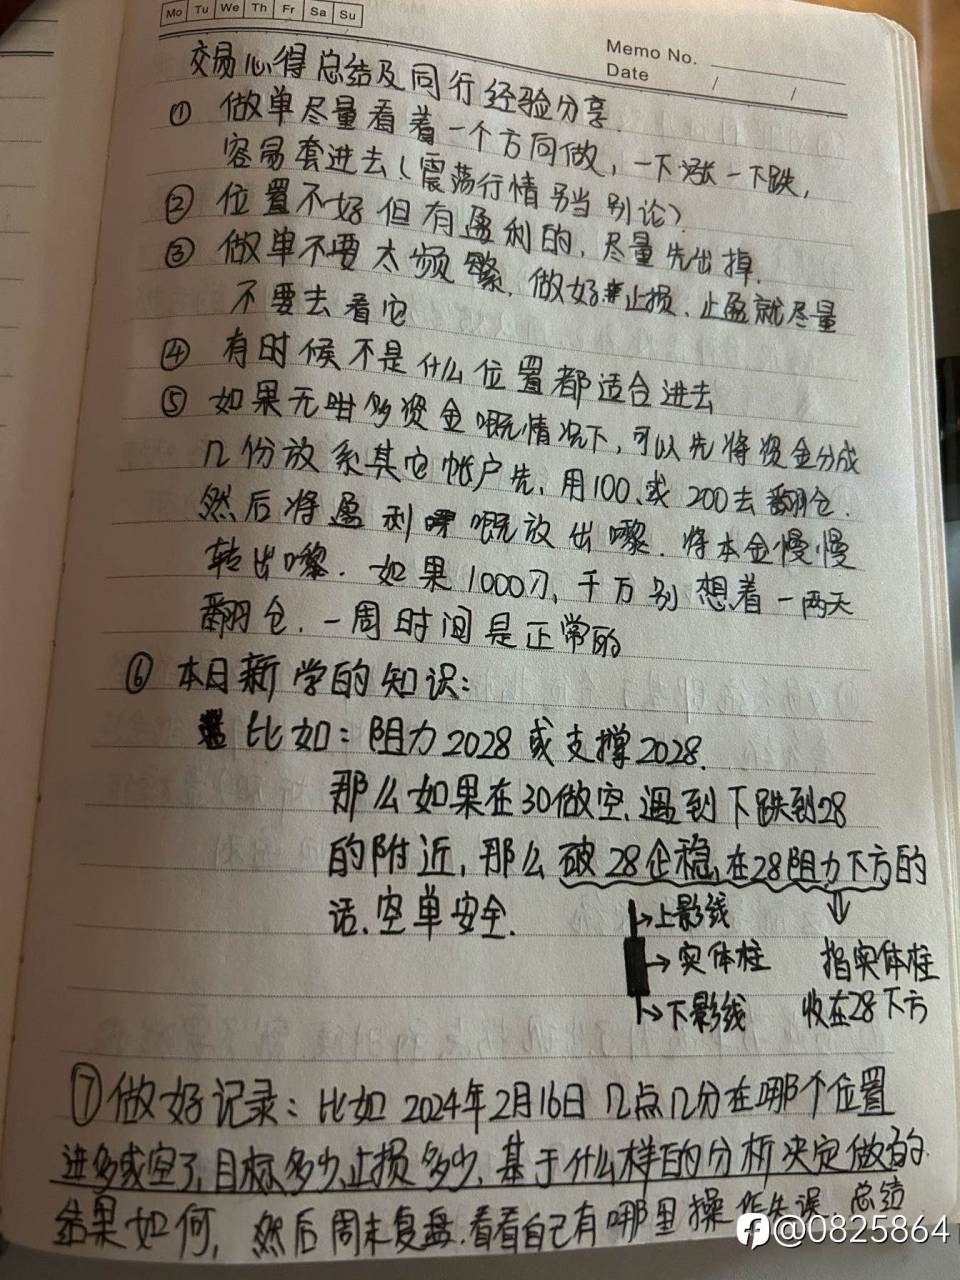 Mo Tu We Th Fr Sa Su
Memo No.
Date / /
交易心得总结及同行经验分享.
① 做单尽量看着一个方向做,一下涨一下跌,
容易套进去(震荡行情另当别论)
② 位置不好但有盈利的,尽量先出掉.
③ 做单不要太频繁.做好止损、止盈就尽量
不要去看它
④ 有时候不是什么位置都适合进去
⑤ 如果无咁多资金嘅情况下,可以先将资金分成
几份放系其它帐户先、用100、或200去翻仓.
然后将盈利嘅放出嚟.将本金慢慢
转出嚟.如果1000刀,千万别想着一两天
翻仓.一周时间是正常的
⑥ 本日新学的知识:
比如:阻力2028或支撑2028.
那么如果在30做空.遇到下跌到28
的附近,那么破28企稳,在28阻力下方的
话.空单安全.
上影线
实体柱 指实体柱
下影线 收在28下方
⑦ 做好记录:比如2024年2月16日几点几分在哪个位置
进多或空了,目标多少,止损多少,基于什么样的分析决定做的.
结果如何,然后周末复盘.看看自己有哪里操作失误.总结
@0825864